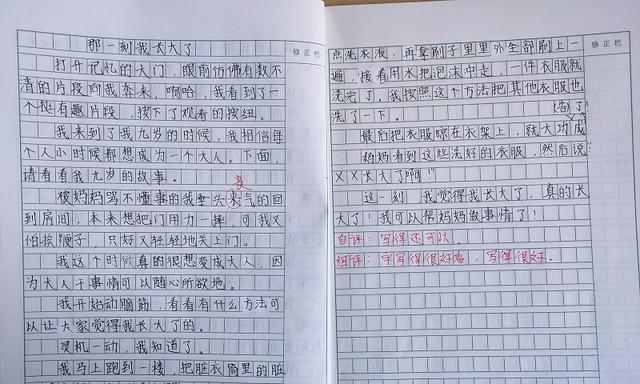 那一刻我长大了
修正栏
打开记忆的大门，眼前仿佛有数不
清的片段向我奔来，啊哈，我看到了一
个挺有趣片段，按下了观看的按纽。
我来到了我九岁的时候，我相信每
个人小时候都想成为一个大人。下面，
请看看我九岁的故事。
丧
被妈妈骂不懂事的我垂头来气的回
到房间，本来想把门用力一摔，可我又
怕挨鞭子，只好又轻轻地关上门。
我这个时候真的很想变成大人，因
为大人干事情可以随心所欲地。
我开始动脑筋，看看有什么方法可
以让大家觉得我长大了的。
灵机一动，我知道了。
我马上跑到一楼，把脏衣筒里的脏
修正栏
点洗衣液，再拿刷子里里外全部刷上一
遍，接着用水把泡沫冲走，一件衣服就
洗完了，我按照这个方法把其他衣服也
洗了一下。
告了！
最后把衣服晾在衣架上，就大功成
妈妈看到这些洗好的衣服，然后说：
XX长大了啊！"
这一刻，我觉得我长大了，真的长
大了！我可以帮妈妈做事情了！
自评：写得还可以。
组评：字写得很好看，写得很好。